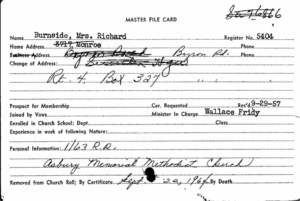 MASTER FILE CARD
Name Burnside, Mrs. Richard Register No. 5404
Home Address 3717 Monroe Phone
Business Address Byron Rd. Phone
Change of Address:
Rt. 4. Box 327
Prospect for Membership Cor. Requested Rec'd 9-29-57
Joined by Vows Minister In Charge Wallace Fridy
Enrolled in Church School: Dept. Class
Experience in work of following Nature:
Personal Information: 1/63 R.R.
Asbury Memorial Methodist Church
Removed from Church Roll: By Certificate Sept 22, By Death